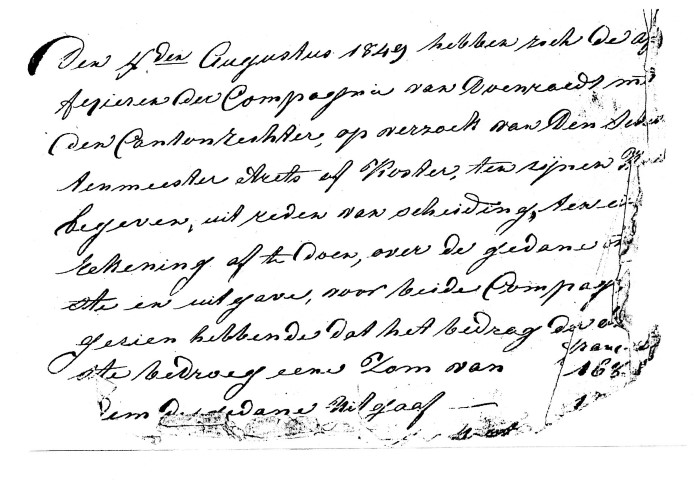 Den 4den Augustus 1849 hebben zich de
der Compagnie van Doenraedt
den Cantonrechter, op verzoek van Den
tenmeester Arets of Koster, ten zijnen
begeven, uit reden van scheiding, ten
rekening af te doen, over de gedane
ste en uitgave, voor beide Compag
gezien hebbende dat het bedrag der
ste bedroeg eene Zom van 168
dem de gedane Uitgaaf —